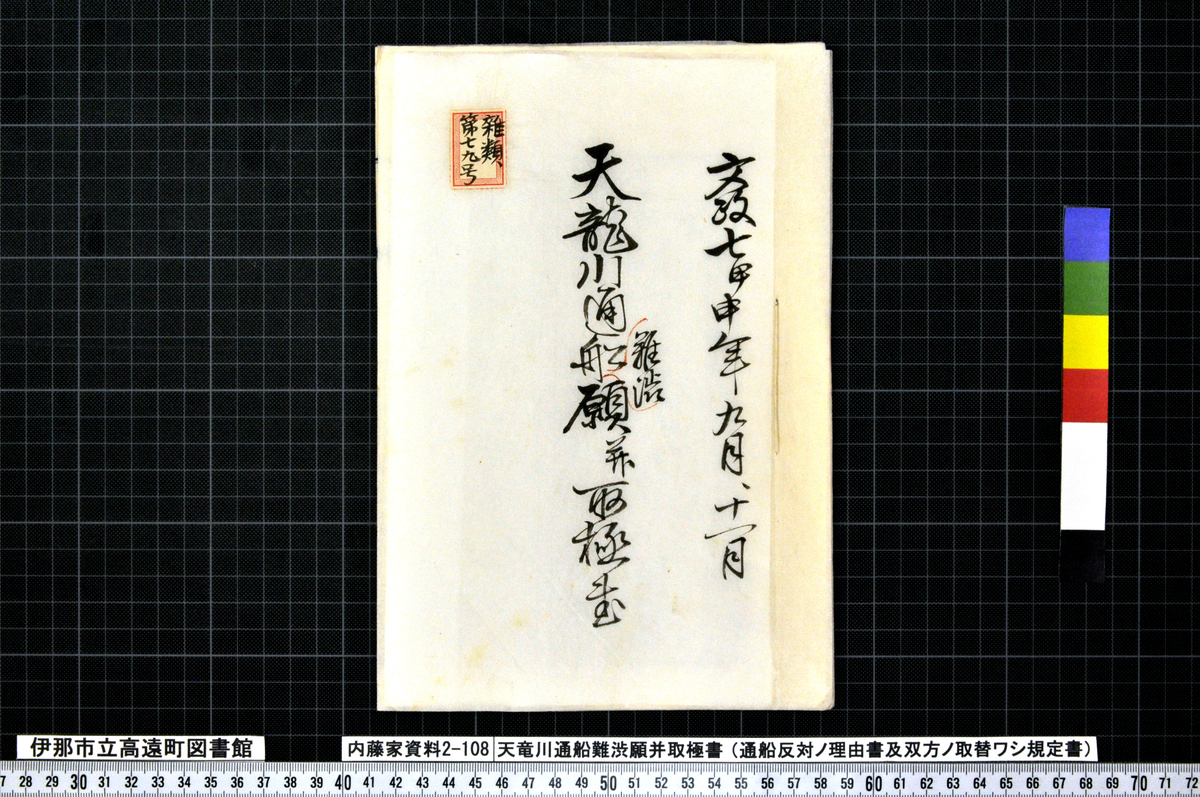 文政七甲申年九月、十一月
難渋
天龍川通船願并取極書
雑類
第七九号
伊那市立高遠町図書館
内藤家資料2-108
天竜川通船難渋願并取極書（通船反対ノ理由書及双方ノ取替ワシ規定書）
7 28 29 30 31 32 33 34 35 36 37 38 39 40 41 42 43 44 45 46 47 48 49 50 51 52 53 54 55 56 57 58 59 60 61 62 63 64 65 66 67 68 69 70 71 72